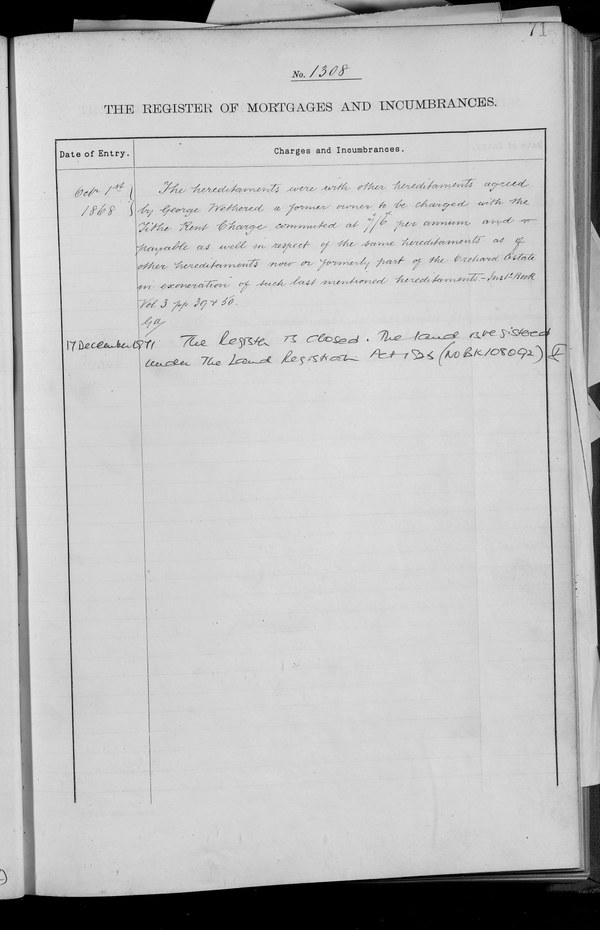 71
No. 1308
THE REGISTER OF MORTGAGES AND INCUMBRANCES.
Date of Entry.
Charges and Incumbrances.
Octr 1st
1868
The hereditaments were with other hereditaments agreed
by George Wethered a former owner to be charged with the
Tithe Rent Charge commuted at 7/6 per annum and
payable as well in respect of the same hereditaments as of
other hereditaments now or formerly part of the Orchard Estate
in exoneration of such last mentioned hereditaments. - Inst. Book
Vol 3 pp 39 & 50.
17 December 1971
The Register is closed. The land is registered
under The Land Registration Act 1925 (No BK108092)